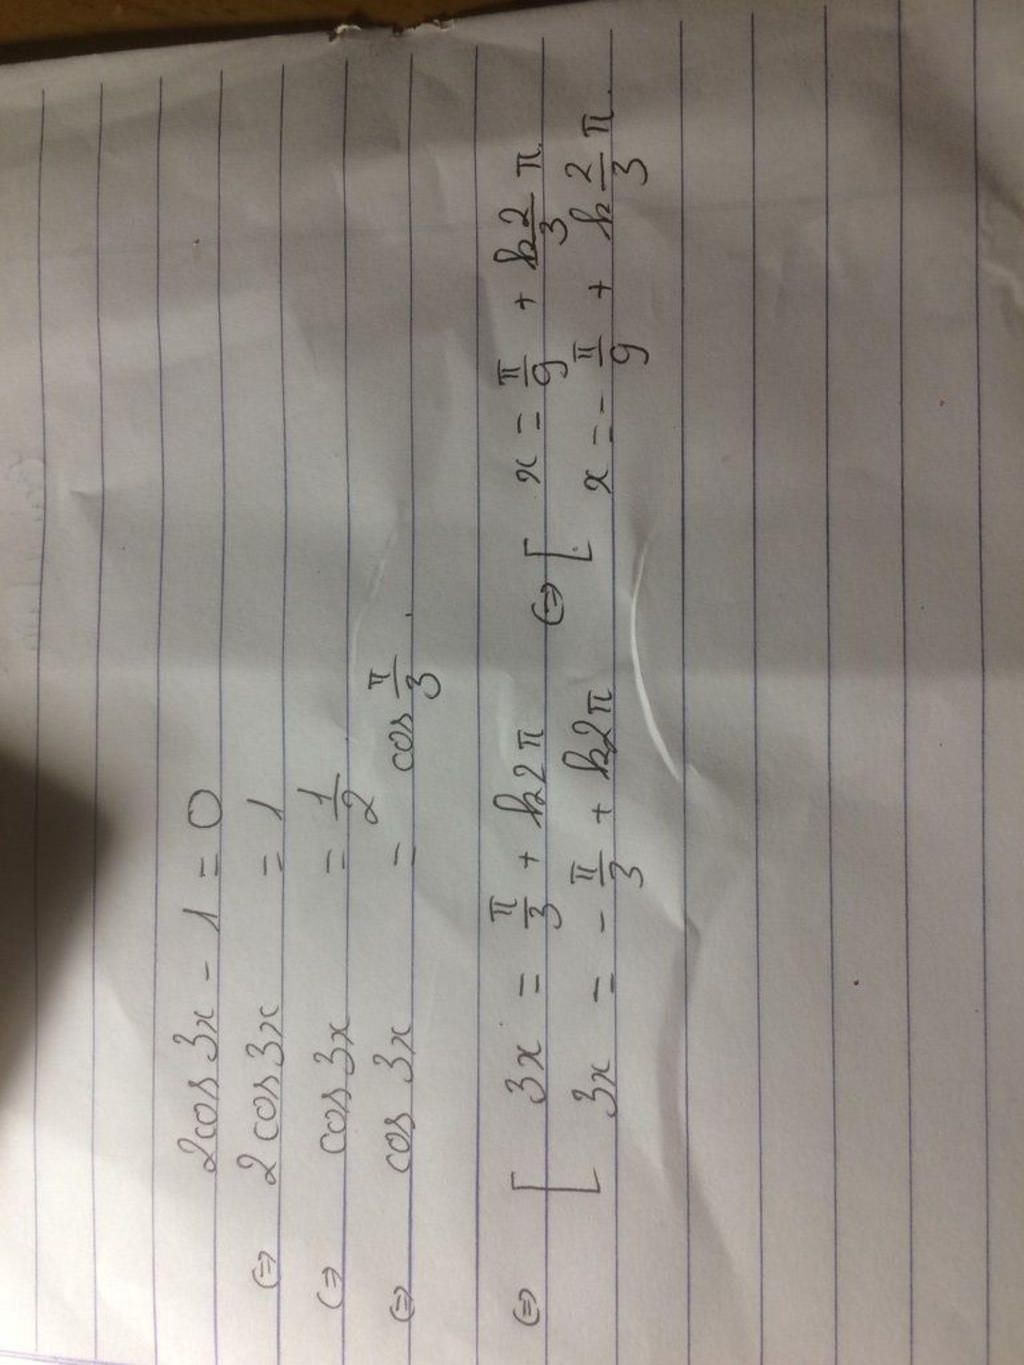 2cos 3x - 1 = 0
(=) 2 cos 3x = 1
(=) cos 3x = 1/2
(=) cos 3x = cos π/3
(=) [ 3x = π/3 + k2π (=) [ x = π/9 + k2/3 π
3x = - π/3 + k2π x = - π/9 + k 2/3 π